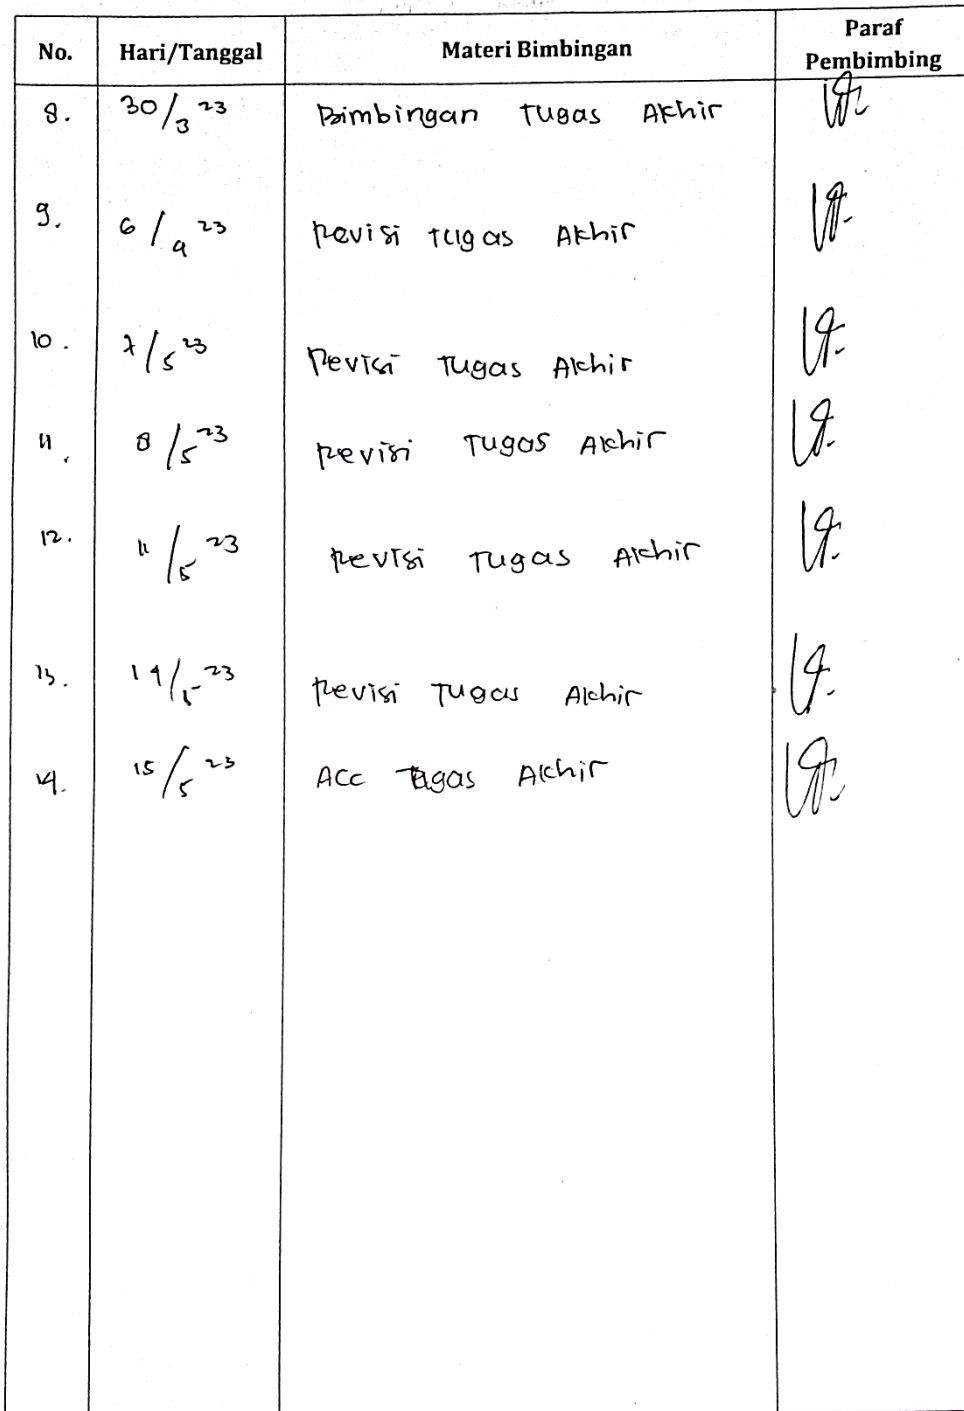 No. Hari/Tanggal Materi Bimbingan Paraf Pembimbing
8. 30/3 23 Bimbingan Tugas Akhir
9. 6/4 23 Revisi Tugas Akhir
10. 7/5 23 Revisi Tugas Akhir
11. 8/5 23 Revisi Tugas Akhir
12. 11/5 23 Revisi Tugas Akhir
13. 14/5 23 Revisi Tugas Akhir
14. 15/5 23 Acc Tugas Akhir